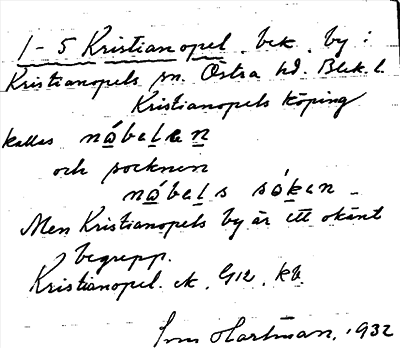 1-5 Kristianopel, bek. by:
Kristianopels sn. Östra hd. Blek. l.
Kristianopels köping
kallas nåbelan
och socknen
nåbels såkən
Men Kristianopels by är ett okänt
begrepp.
Kristianopel. ek. G12, kb.
Hartman, 1932